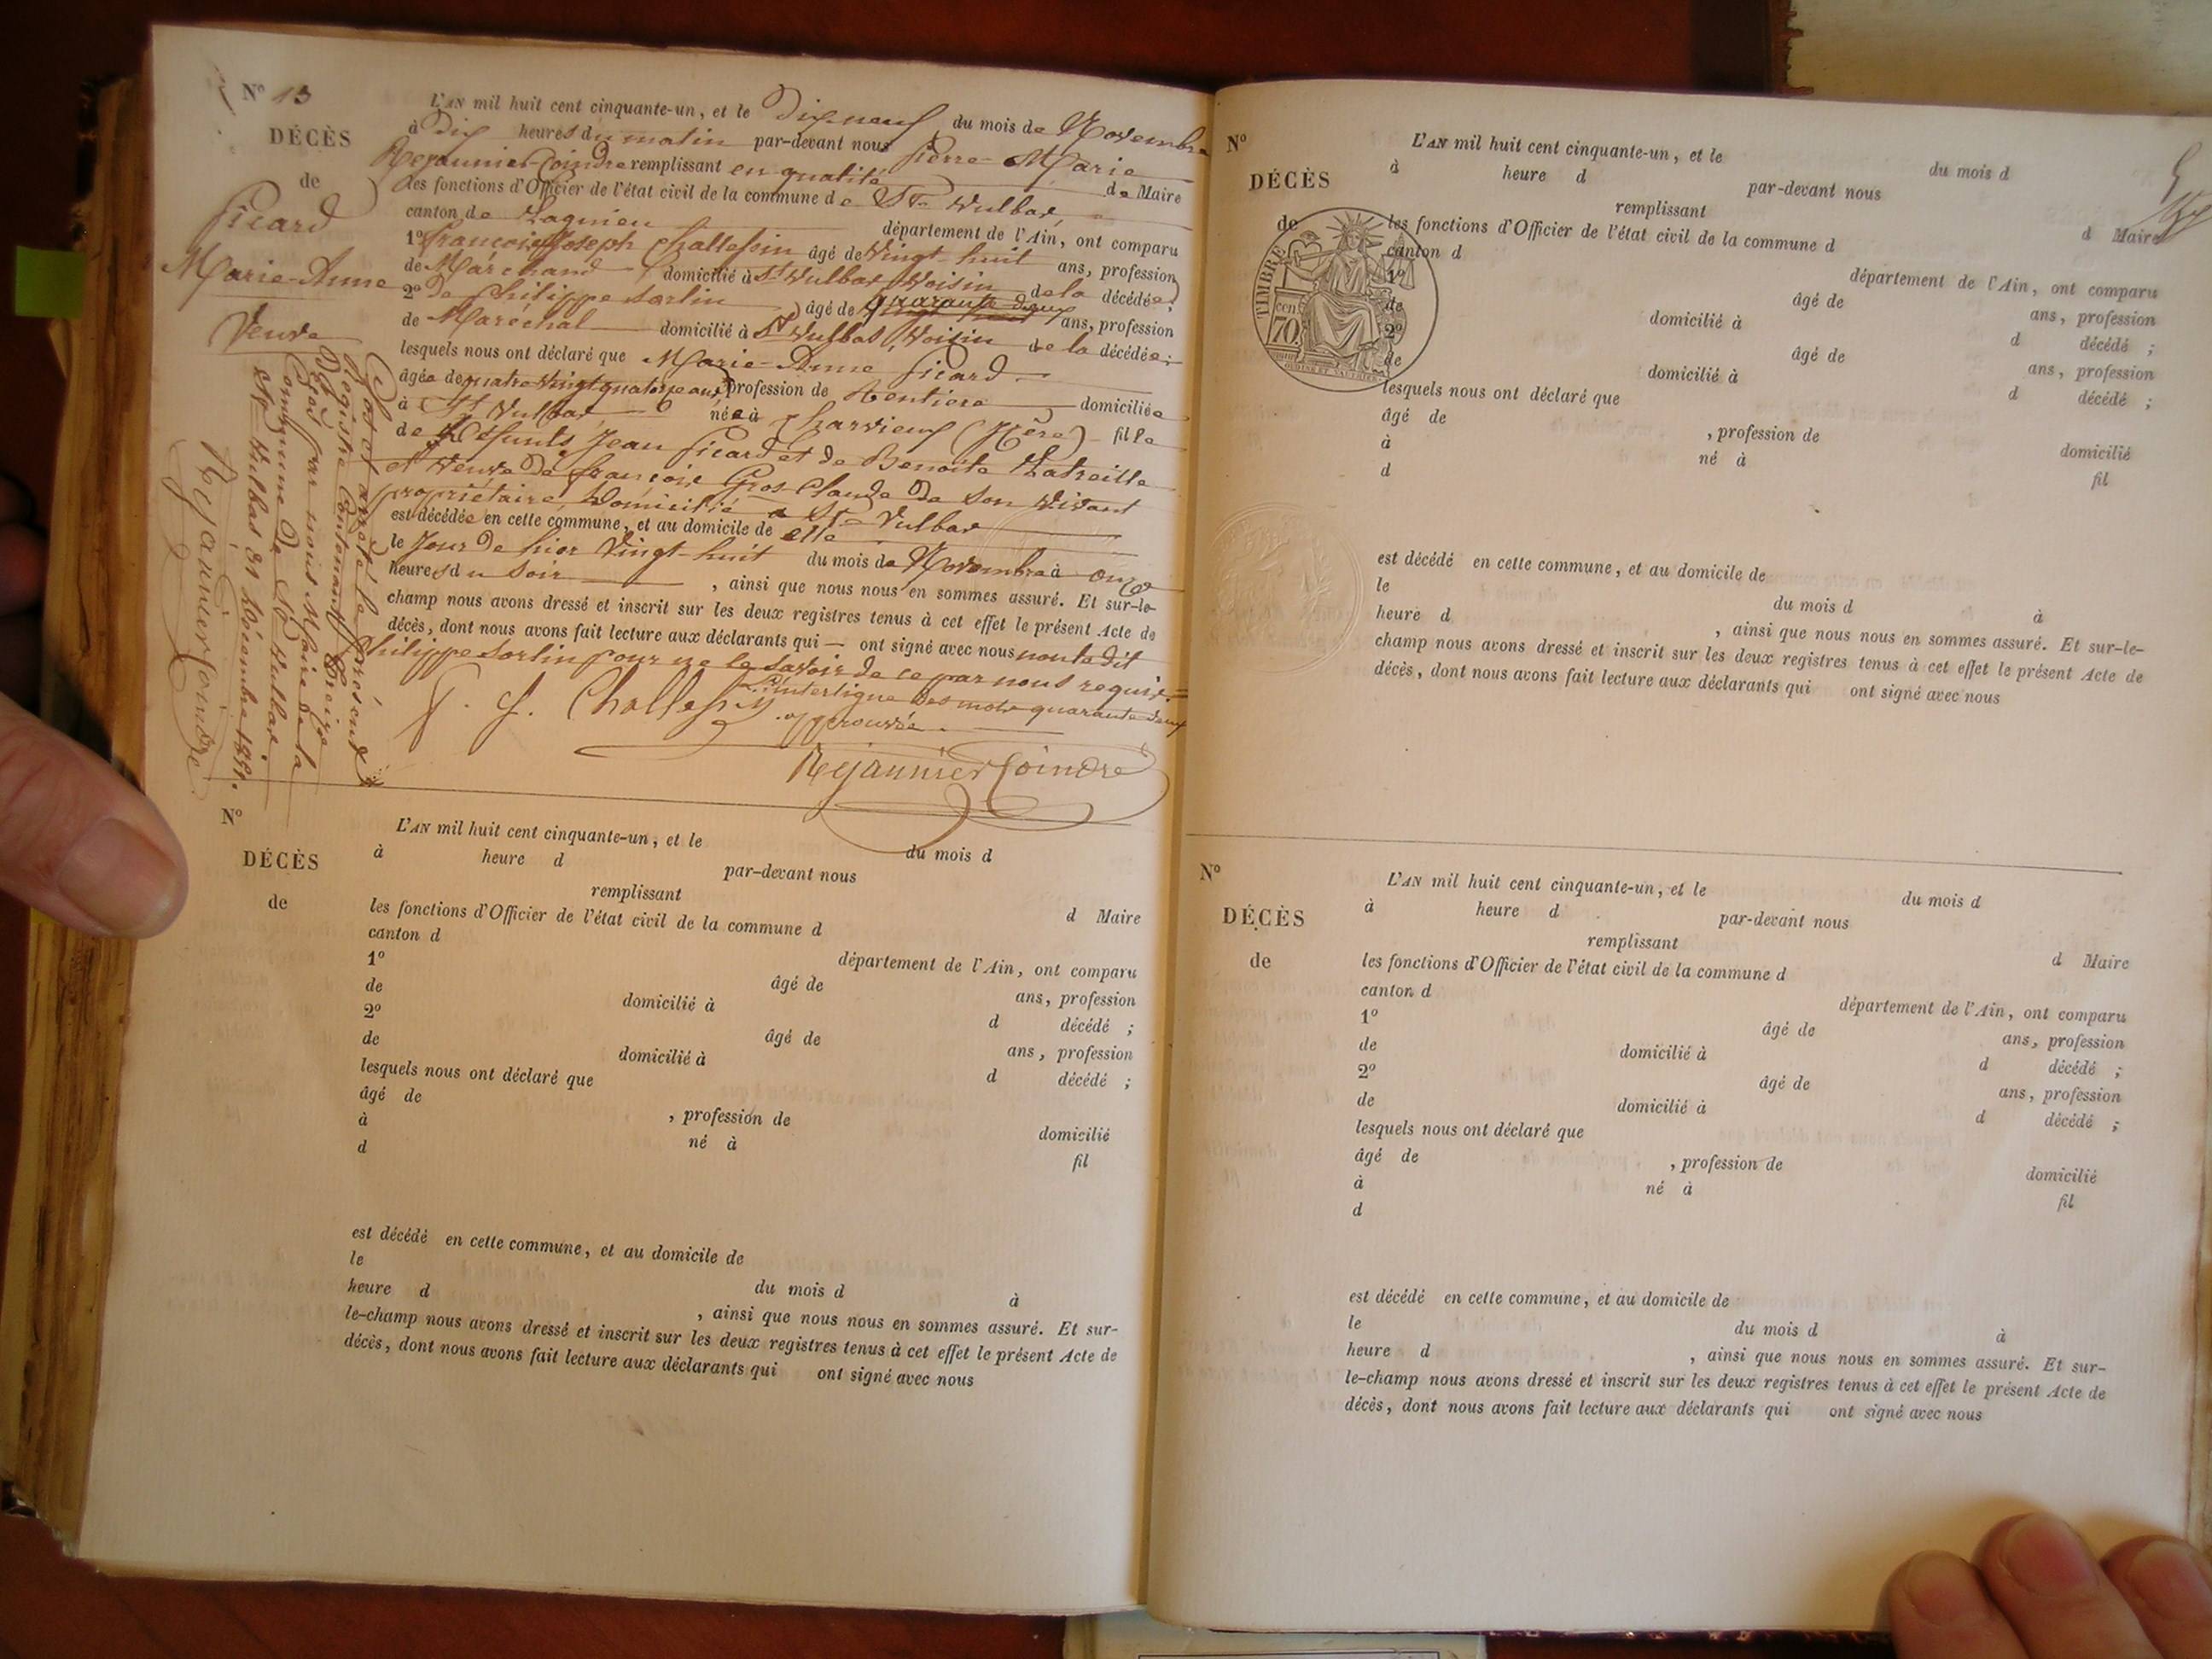 N° 13
DÉCÈS
de
Picard
Marie-Anne
Veuve
L'AN mil huit cent cinquante-un, et le Dix-neuf du mois de Novembre
à Dix heures du matin par-devant nous Pierre-Marie
Rejaunier-Coindre remplissant en qualité de Maire
les fonctions d'Officier de l'état civil de la commune de St Vulbas,
canton de Lagnieu département de l'Ain, ont comparu
1° François-Joseph Challesin âgé de Vingt-huit ans, profession
de Marchand domicilié à St Vulbas Voisin de la décédée;
2° de Philippe Sorlin âgé de quarante deux ans, profession
de Maréchal domicilié à St Vulbas, Voisin de la décédée;
lesquels nous ont déclaré que Marie-Anne Picard
âgée de quatre Vingt quatorze ans, profession de Rentiere domiciliée
à St Vulbas née à Charvieux (Isère) fille
de Défunts Jean Picard et de Benoite Latreille
et Veuve de François Gros-Claude de son Vivant
propriétaire, Domicilié à St Vulbas
est décédée en cette commune, et au domicile de elle
le Jour de hier Vingt-huit du mois de Novembre à onze
heures du soir , ainsi que nous nous en sommes assuré. Et sur-le-
champ nous avons dressé et inscrit sur les deux registres tenus à cet effet le présent Acte de
décès, dont nous avons fait lecture aux déclarants qui — ont signé avec nous non le dit
Philippe Sorlin pour ne le savoir de ce par nous requis
L'interligne des mots quarante deux
approuvée.
F. J. Challesin
Rejaunier Coindre
Clos et arrêté le présent
Registre contenant treize
Décès par nous Maire de la
commune de St Vulbas
St Vulbas 31 Décembre 1851.
Rejaunier Coindre
N°
DÉCÈS
de
L'AN mil huit cent cinquante-un, et le du mois d
à heure d par-devant nous
remplissant d Maire
les fonctions d'Officier de l'état civil de la commune d
canton d département de l'Ain, ont comparu
1° âgé de ans, profession
de domicilié à d décédé ;
2° âgé de ans, profession
de domicilié à d décédé ;
lesquels nous ont déclaré que
âgé de , profession de domicilié
à né à fil
d
est décédé en cette commune, et au domicile de
le du mois d à
heure d , ainsi que nous nous en sommes assuré. Et sur-
le-champ nous avons dressé et inscrit sur les deux registres tenus à cet effet le présent Acte de
décès, dont nous avons fait lecture aux déclarants qui ont signé avec nous
N°
DÉCÈS
de
TIMBRE
cen.
70.
L'AN mil huit cent cinquante-un, et le du mois d
à heure d par-devant nous
remplissant d Maire
les fonctions d'Officier de l'état civil de la commune d
canton d département de l'Ain, ont comparu
1° âgé de ans, profession
de domicilié à d décédé ;
2° âgé de ans, profession
de domicilié à d décédé ;
lesquels nous ont déclaré que
âgé de , profession de domicilié
à né à fil
d
est décédé en cette commune, et au domicile de
le du mois d à
heure d , ainsi que nous nous en sommes assuré. Et sur-le-
champ nous avons dressé et inscrit sur les deux registres tenus à cet effet le présent Acte de
décès, dont nous avons fait lecture aux déclarants qui ont signé avec nous
N°
DÉCÈS
de
L'AN mil huit cent cinquante-un, et le du mois d
à heure d par-devant nous
remplissant d Maire
les fonctions d'Officier de l'état civil de la commune d
canton d département de l'Ain, ont comparu
1° âgé de ans, profession
de domicilié à d décédé ;
2° âgé de ans, profession
de domicilié à d décédé ;
lesquels nous ont déclaré que
âgé de , profession de domicilié
à né à fil
d
est décédé en cette commune, et au domicile de
le du mois d à
heure d , ainsi que nous nous en sommes assuré. Et sur-
le-champ nous avons dressé et inscrit sur les deux registres tenus à cet effet le présent Acte de
décès, dont nous avons fait lecture aux déclarants qui ont signé avec nous